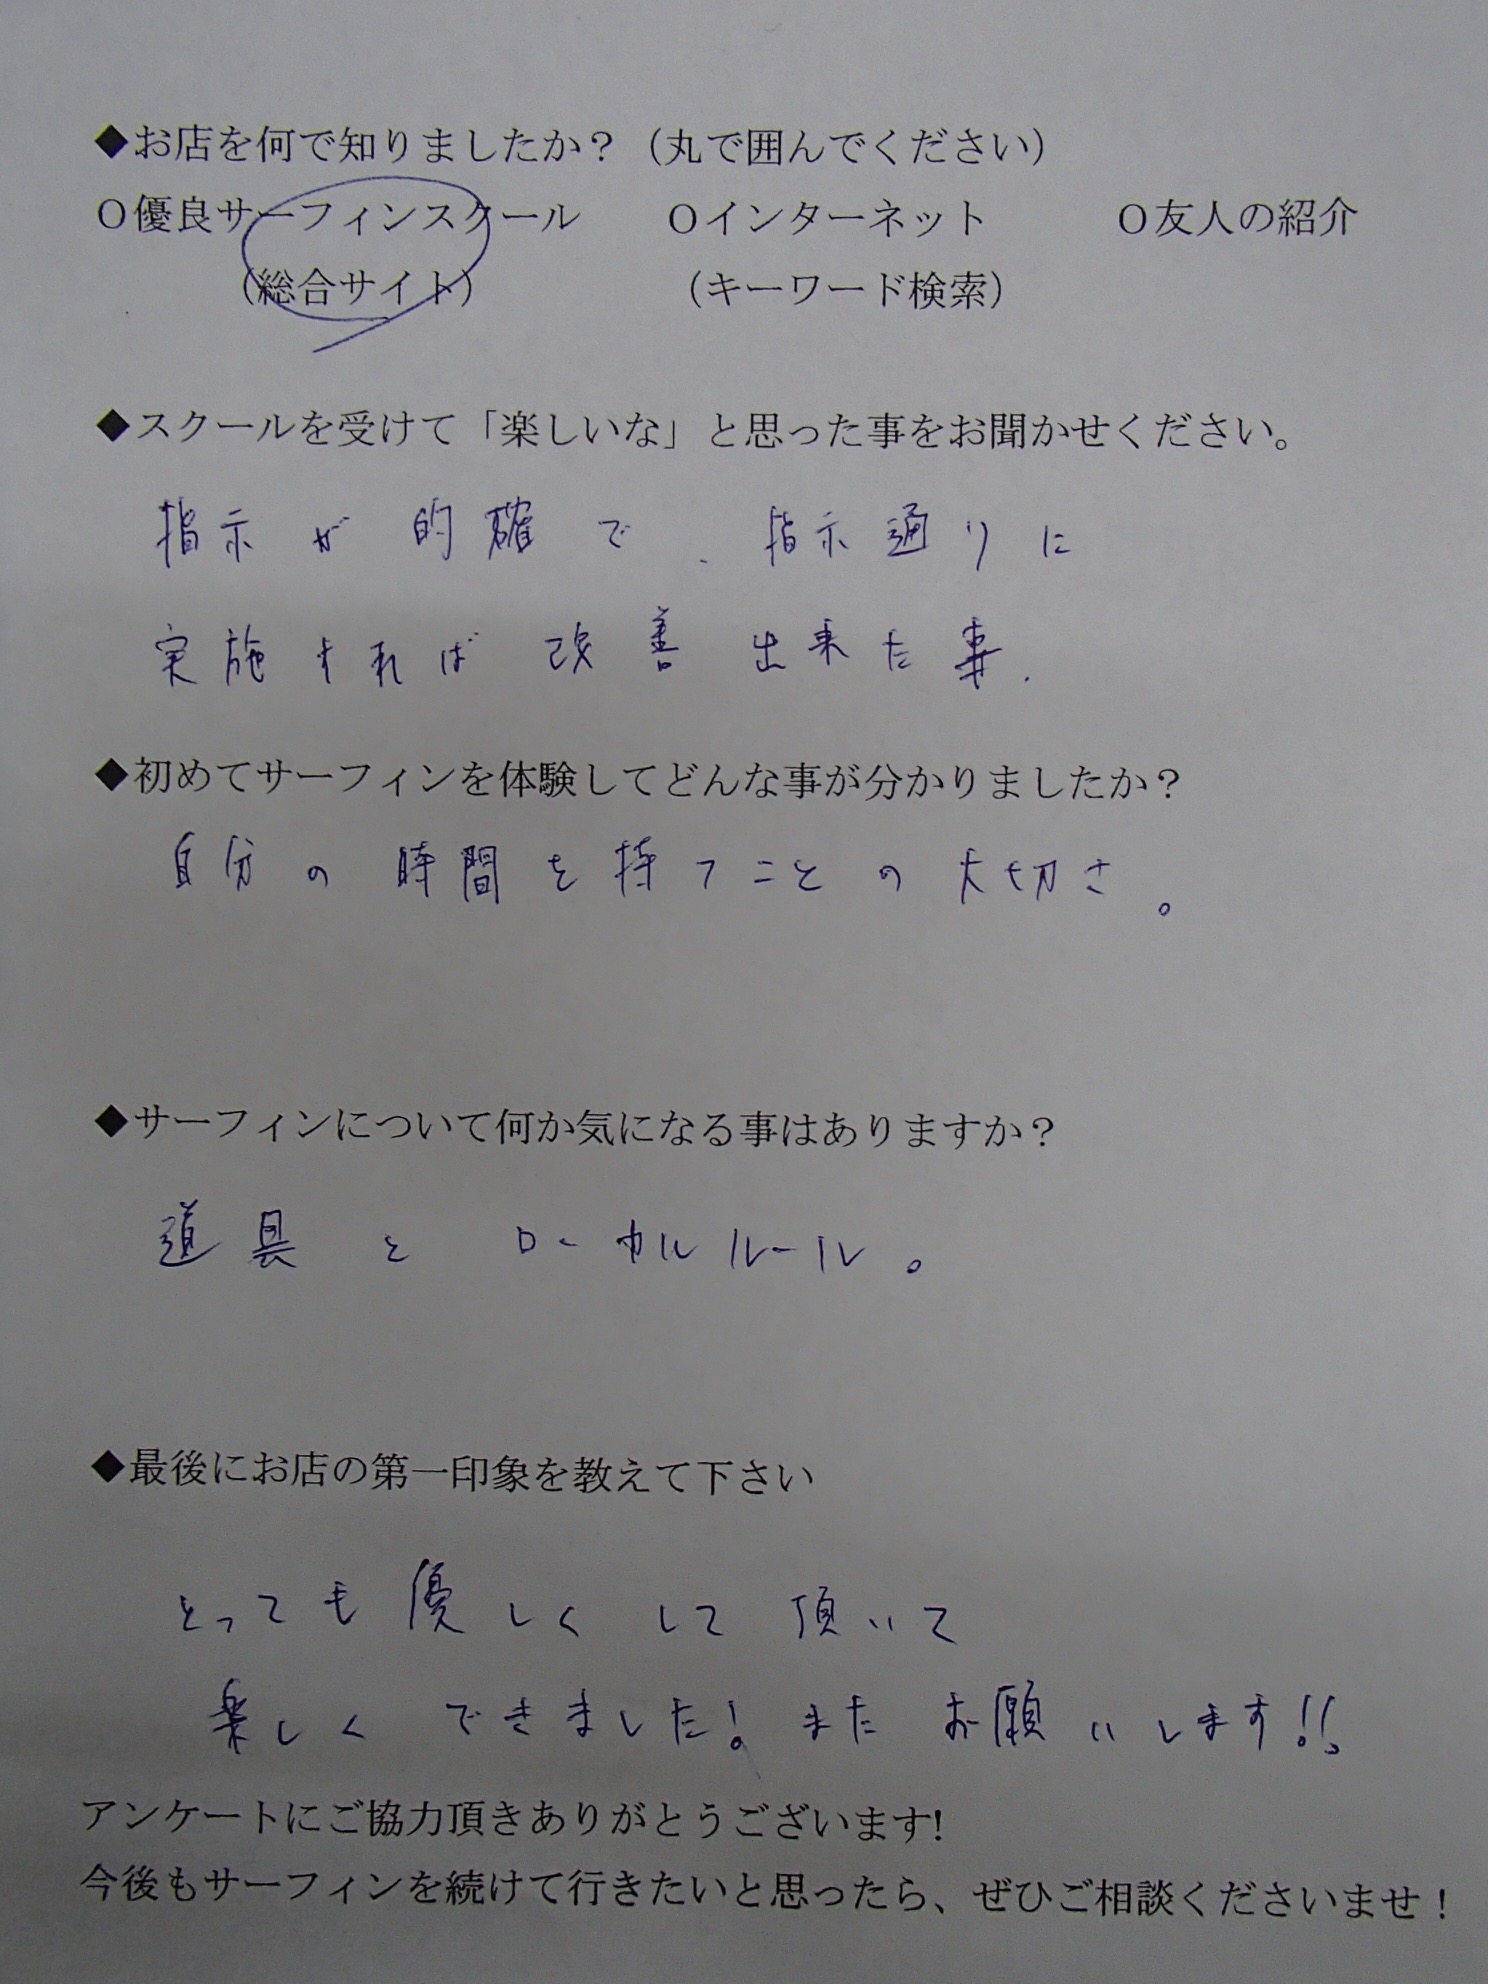 ◆お店を何で知りましたか？（丸で囲んでください）
○優良サーフィンスクール　　○インターネット　　　○友人の紹介
（総合サイト）　　　　　（キーワード検索）
◆スクールを受けて「楽しいな」と思った事をお聞かせください。
指示が的確で、指示通りに
実施すれば改善出来た事.
◆初めてサーフィンを体験してどんな事が分かりましたか？
自分の時間を持つことの大切さ。
◆サーフィンについて何か気になる事はありますか？
道具とローカルルール。
◆最後にお店の第一印象を教えて下さい
とっても優しくして頂いて
楽しくできました!またお願いします!!
アンケートにご協力頂きありがとうございます!
今後もサーフィンを続けて行きたいと思ったら、ぜひご相談くださいませ！